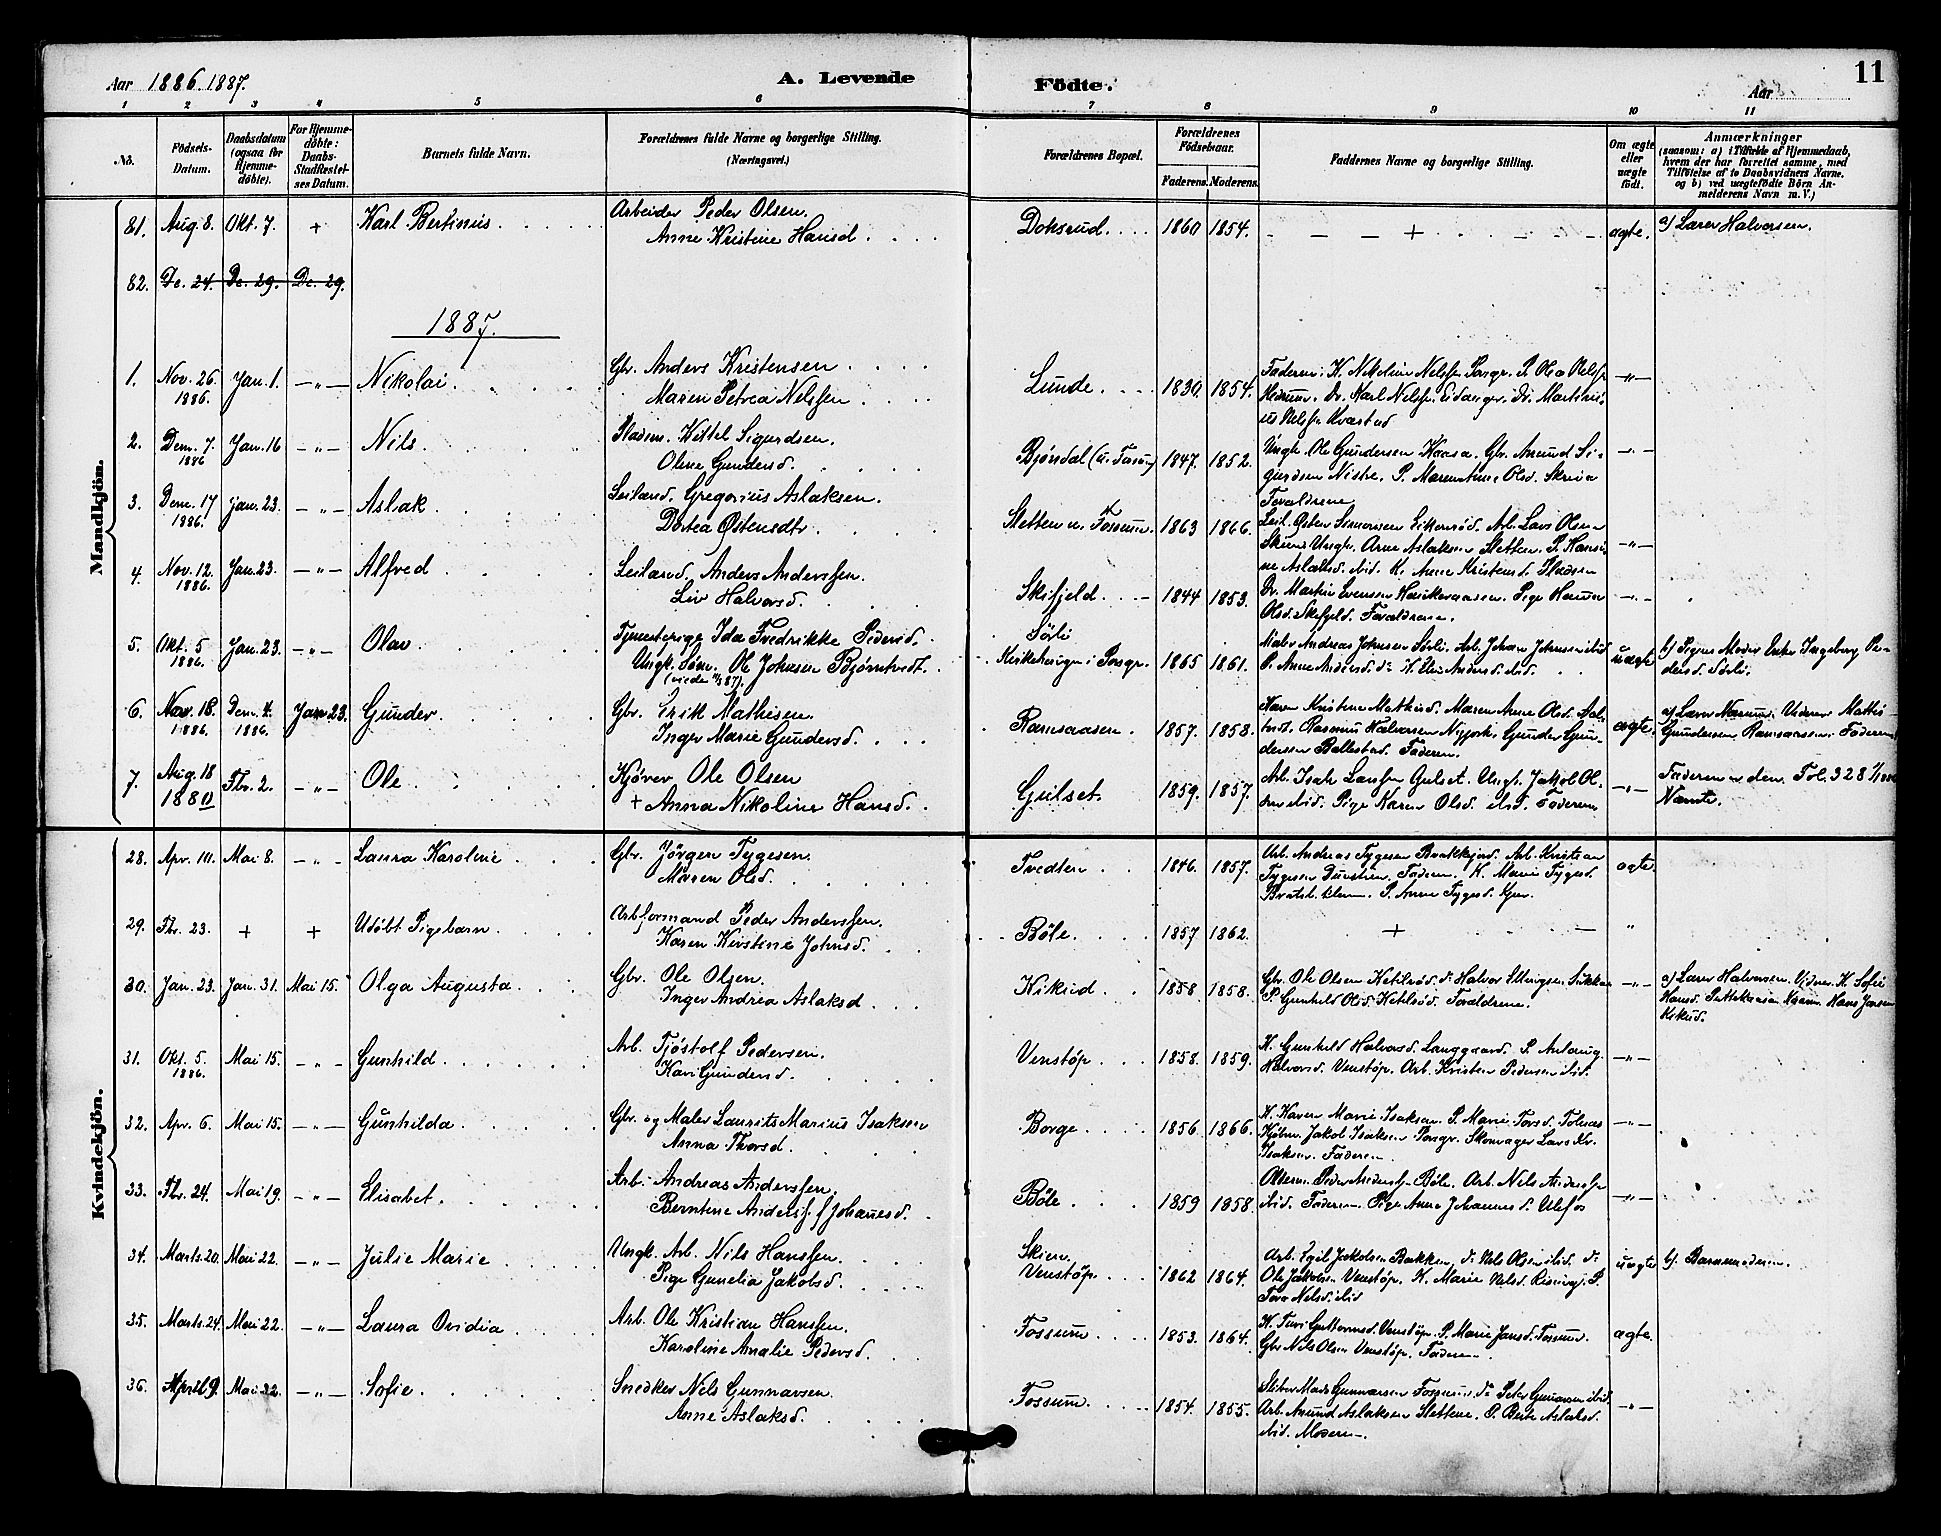 Aar 1886. 1887.
A. Levende Födte.
Aar
11
1 2 3 4 5 6 7 8 9 10 11
No.
Födsels-Datum.
Daabsdatum (ogsaa for Hjemme-döbte).
For Hjemme-döbte: Daabs-Stadfæstel-ses Datum.
Barnets fulde Navn.
Forældrenes fulde Navne og borgerlige Stilling. (Næringsvei.)
Forældrenes Bopæl.
Forældrenes Födselsaar.
Faderens. Moderens.
Faddernes Navne og borgerlige Stilling.
Om ægte eller uægte födt.
Anmærkninger (saasom: a) i Tilfælde af Hjemmedaab, hvem der har forrettet samme, med Tilföielse af to Daabsvidners Navne. og b) ved uægtefödte Börn Anmelderens Navn m. V.)
Mandkjön.
81. Aug. 8. Okt. 7. + Karl Bertinus. Arbeider Peder Olsen. Doksrud. 1860 1854. - - - + - - - ægte. a) Lærer Halvorsen.
Anne Kristine Hansd.
82. De. 24. De. 29. De. 29.
1887.
1. Nov. 26 1886. Jan. 1. -"- Nikolai. Gbr. Anders Kristensen
Maren Petrea Nelssen
Lunde. 1830. 1854. -"-
2. Dem. 7. 1886 Jan. 16 -"- Nils. Pladsm. Kittel Sigurdsen.
Oline Gundersd.
Bjørndal 1847. 1852. Ungk. Ole Gundersen Kaasa. Gbr. Amund Si-
gurdsen Nistre. P. Maren Anne Olsd. Skreia
Forældrene -"-
3. Dem. 17 1886. Jan. 23. -"- Aslak Leilænd. Gregorius Aslaksen.
Dortea Østensdtr.
Sletten u. Fossum. 1863 1866. Leil. Østen Simonsen Eikenrød. Arb. Lars Olsen
Skien. Ungk. Arne Aslaksen Sletten. P. Hansi-
ne Aslaksd. ibid. K. Anne Kristensd. Pladsen -"-
4. Nov. 12. 1886. Jan. 23. -"- Alfred Leilænd. Anders Anderssen.
Liv Halvorsd.
Skifjeld. 1844 1853. Gr. Martin Evensen
Olsd. Skifjeld. Forældrene. -"-
5. Okt. 5 1886. Jan. 23. -"- Olav Tjenestepige Ida Fredrikke Pedersd.
Ungk. Søm. Ole Johnsen Bjørntvedt.
(viede 11/3 87).
Sörli
Kirkehaugen i Porsgr. 1865 1861. Maler Andreas Johnsen Sörli. Arb. Johan Johnsen ibid
P. Anne Andersd. do K. Elen Andersd. ibid. uægte b) Pigens Moder Enke Ingeborg Pe-
dersd. Sörli.
6. Nov. 18. 1886. Dem. 4. 1886. Jan. 23. Gunder. Gbr. Erik Mathisen.
Inger Marie Gundersd.
Ramsaasen. 1857. 1858. Karen Kristine Mathisd. Maren Anne Olsd.
Rasmus Halvorsen Gunder Gun-
dersen Ballestad. Faderen. ægte. a) Lærer Nærum. Vidner: Mattis
Gundersen Ramsaasen. Faderen
7. Aug. 18 1880 Fbr. 2. -"- Ole. Kjörer Ole Olsen
+ Anna Nikoline Hansd.
Gulset. 1859. 1857. Arb. Isak Larssen Gulset. Ungk. Jakob Ol-
sen ibid. Pige Karen Olsd. ibid. Faderen -"- Faderen
Kvindekjön.
28. Apr. 10. Mai 8. -"- Laura Karoline Gbr. Jörgen Tygesen.
Maren Olsd.
Tvedten 1846. 1857. Arb. Andreas Tygesen Brækkejord. Arb. Kristian
Tygesen Faderen. K. Maren Tygesd.
P. Anne Tygesd. ægte.
29. Fbr. 23. + + Udöbt Pigebarn. Arbformand Peder Anderssen.
Karen Kirstine Johnsd.
Böle. 1857 1862. + - "
30. Jan. 23. Jan. 31. Mai 15. Olga Augusta. Gbr. Ole Olsen.
Inger Andrea Aslaksd
Kikud 1858 1858. Gbr. Ole Olsen Ketilsöd. do Halvor Ellingsen
P. Gunhild Olsd. Ketilsöd. Forældrene. -"- a) Lærer Halvorsen. Vidner: K. Sofie
Hansd. Hans Jansen
Kikud.
31. Okt. 5. 1886. Mai 15. -"- Gunhild Arb. Tjöstolf Pedersen.
Kari Gundersd.
Venstöp. 1858. 1859. K. Gunhild Halvorsd. Langgaard. P. Anlaug
Halvorsd. Venstöp. Arb. Kristen Pedersen ibid. -"-
32. Apr. 6. Mai 15. -"- Gunhilda Gbr. og Maler Laurits Marius Isaksen
Anna Thorsd.
Borge. 1856. 1866. K. Karen Marie Isaksen. P. Marie Torsd. Tolnæs
Kjöbm. Jakob Isaksen Porsgr. Skomager Lars Kr.
Isaksen. Faderen. -"-
33. Fbr. 24. Mai 19. -"- Elisabet. Arb. Andreas Anderssen.
Berntine Anderss. f. Johannesd.
Böle 1859 1858. Peder Anderss. Böle. Arb. Nils Anderss.
ibid. Faderen. Pige Anne Johannesd. Ulefos -"-
34. Marts. 20. Mai 22. -"- Julie Marie Ungk. Arb. Nils Hanssen.
Pige Gunelia Jakobsd.
Skien.
Venstöp 1862 1864. Arb. Egil Jakobsen Bakken. do Nels Olsen ibid. do
Ole Jakobsen Venstöp. K. Marie Nelsd. Rising. P.
Tora Nelsd. ibid uægte b). Barnemoderen.
35. Marts. 24. Mai 22. -"- Laura Ovidia Arb. Ole Kristian Hanssen.
Karoline Amalie Pedersd.
Fossum 1853. 1864. K. Turi Guttormsd. Venstöp. P. Marie Jansd. Fossum.
Gbr Nils Olsen Venstöp. Faderen. ægte.
36. April 9. Mai 22. -"- Sofie. Snedker Nils Gunnarsen
Anne Aslaksd.
Fossum 1854. 1855. Sliber Mads Gunnarsen Fossum. do Peter Gunnarsen ibid
Arb. Amund Aslaksen Slettene. P. Berte Aslaksd.
ibid. Moderen. -"-